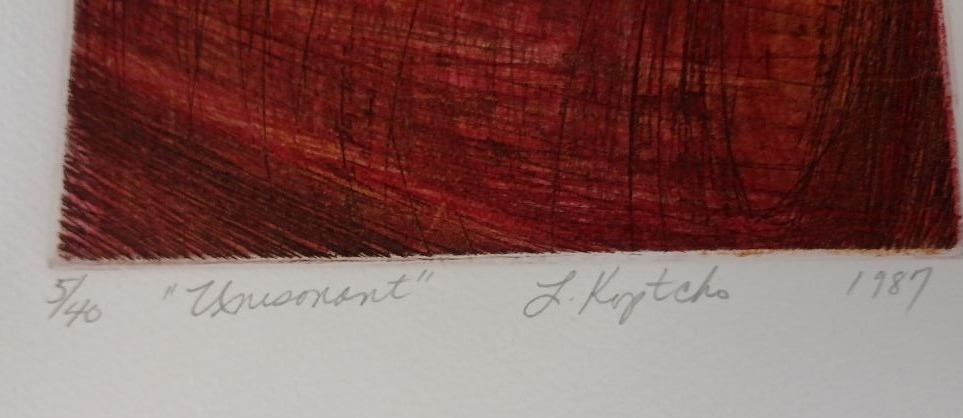 5/40 "Unisonant" L. Koptcho 1987